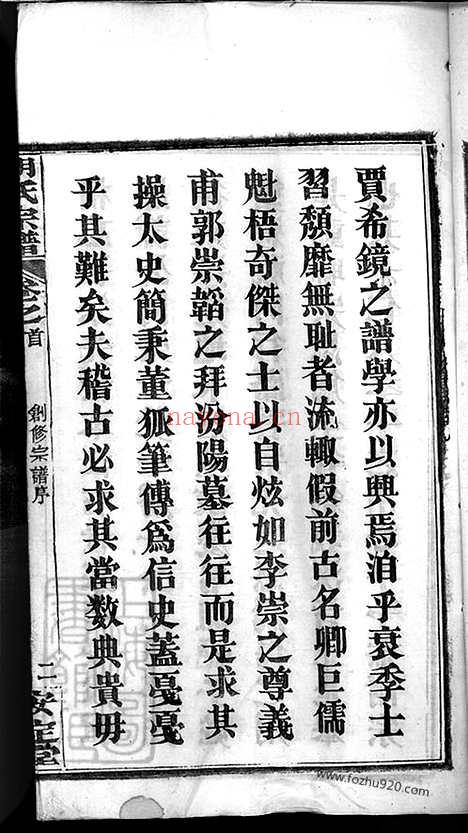 賈希鏡之譜學亦以興焉洎乎衰季士
習頽靡無耻者流輒假前古名卿巨儒
魁梧奇傑之士以自炫如李崇之尊義
甫郭崇韜之拜汾陽墓往往而是求其
操太史簡秉董狐筆傳爲信史蓋戞戞
乎其難矣夫稽古必求其當数典貴毋
氏宗譜
卷之首
創修宗譜序
二
安定堂
nayona.cn
www.fozhu920.com